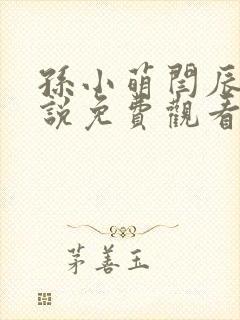 孫小萌閆辰
說免費觀看
茅善玉